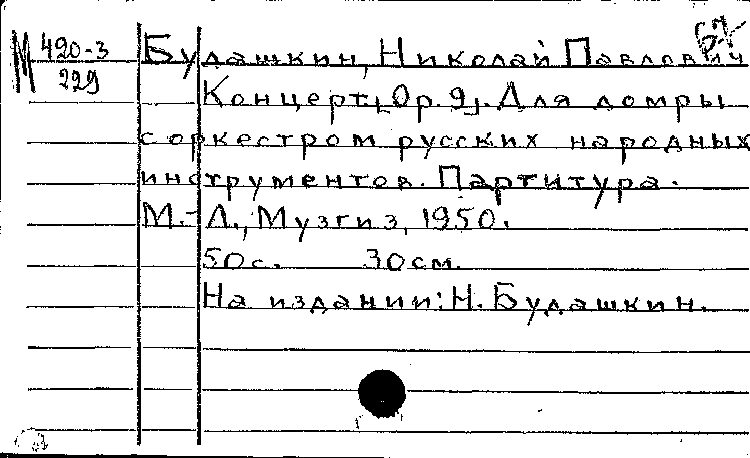 М 420-3
229
67
Будашкин, Николай Павлович
Концерт, Ор. 9. Для домры
с оркестром русских народных
инструментов. Партитура.
М.-Л., Музгиз, 1950.
50с. 30см.
На издании: Н. Будашкин.